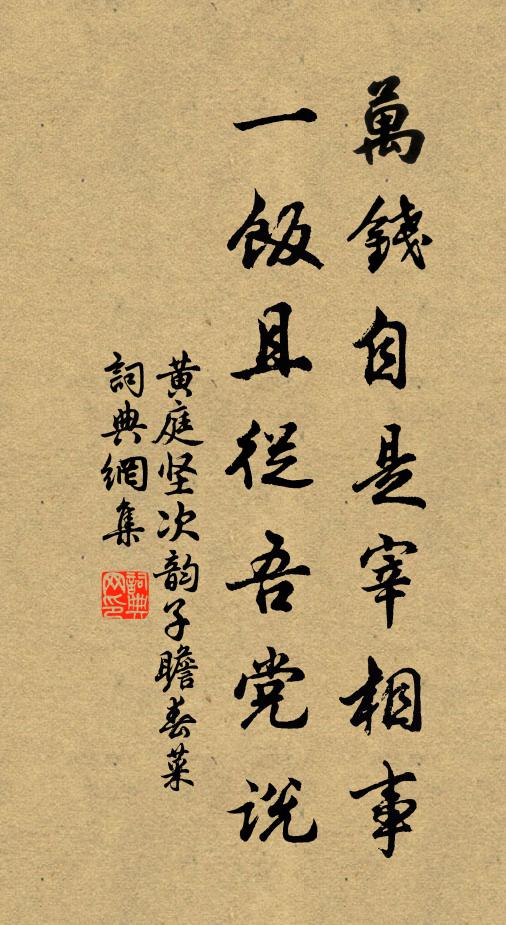 萬錢自是宰相事
一飯且從吾党説
黄庭坚次韵子瞻春菜
詞典網集
詞典
网印